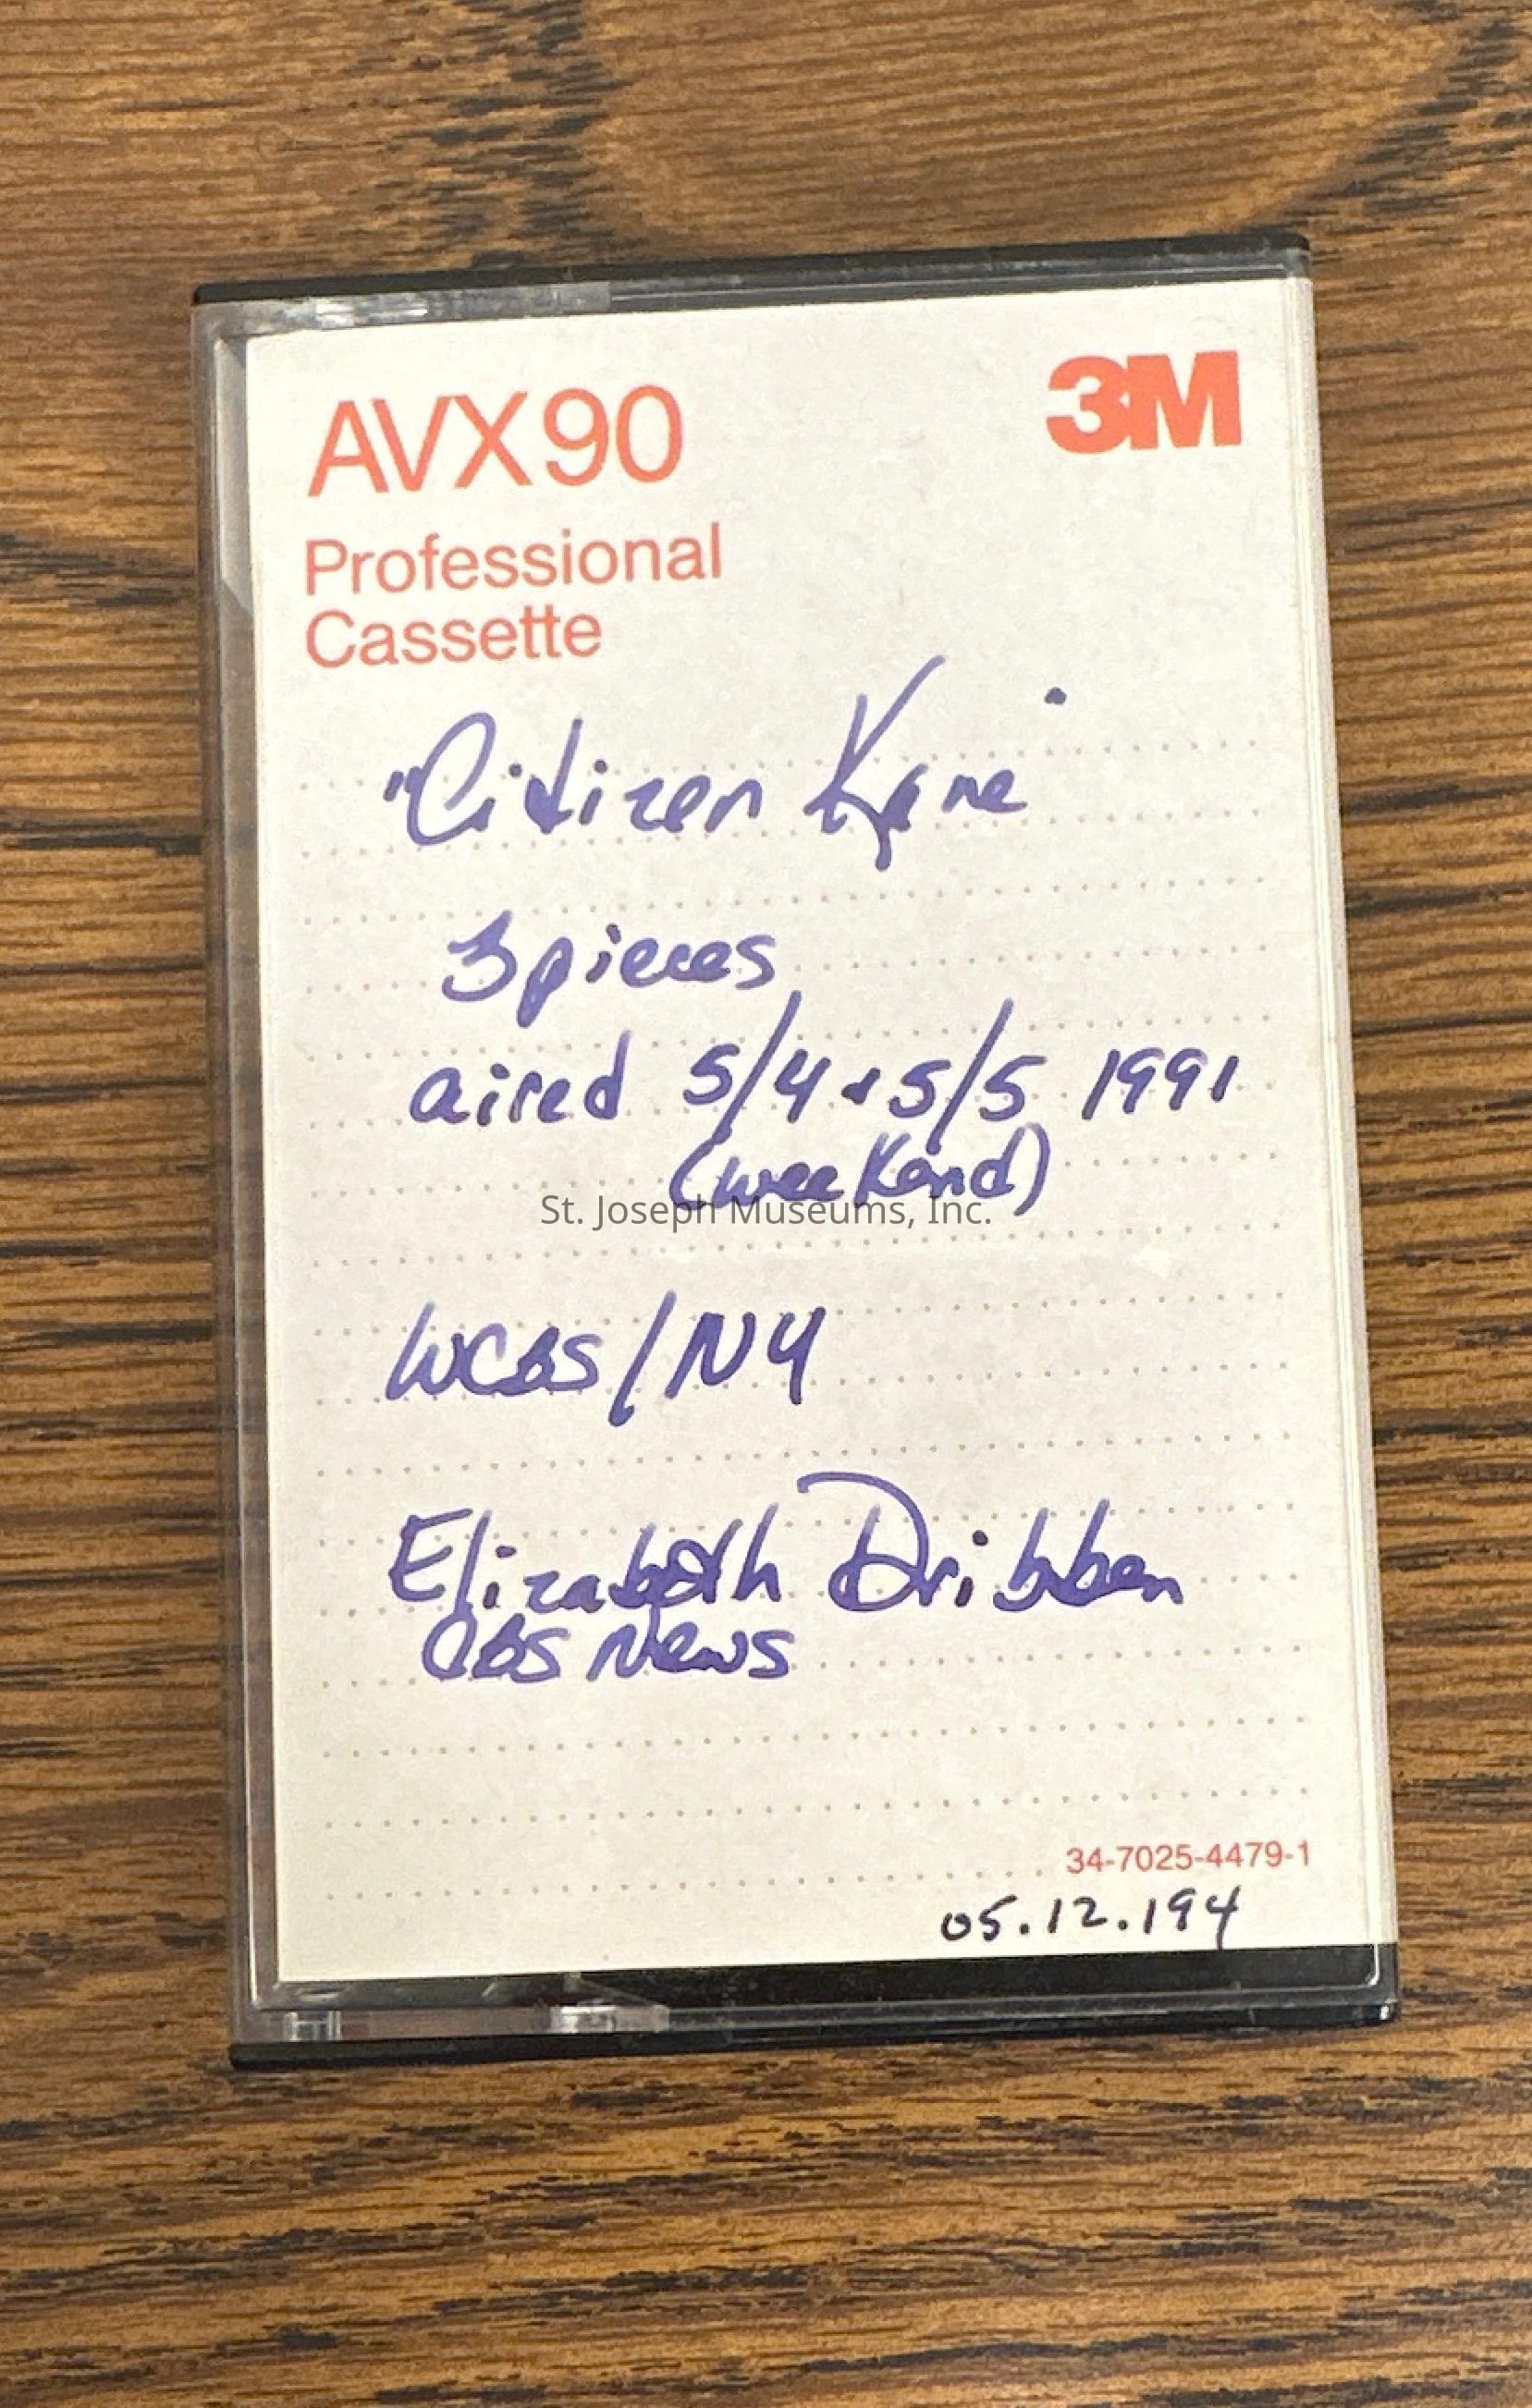 AVX90
3M
Professional
Cassette
"Citizen Kane"
3 pieces
aired 5/4 + 5/5 1991
(weekend)
St. Joseph Museums, Inc.
WCBS/NY
Elizabeth Dribben
CBS News
34-7025-4479-1
05.12.194